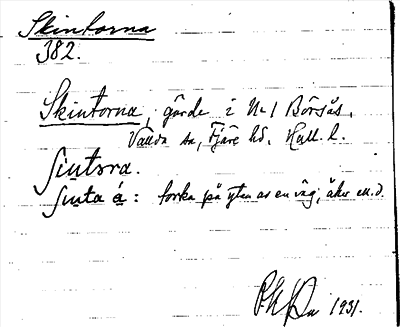 Skintorna
382.
Skintorna, gärde i N:1 Börsås,
Vallda sn, Fjäre hd. Hall. l.
ʃintɔra.
ʃinta á: torka på ytan av en väg, åker m.d.
1931.